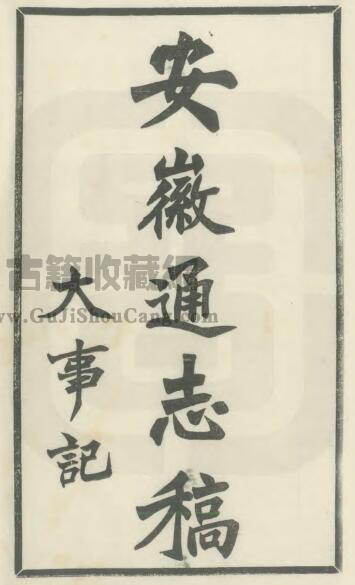 安徽通志稿
大事记
古籍收藏
www.GuJiShouCang.com